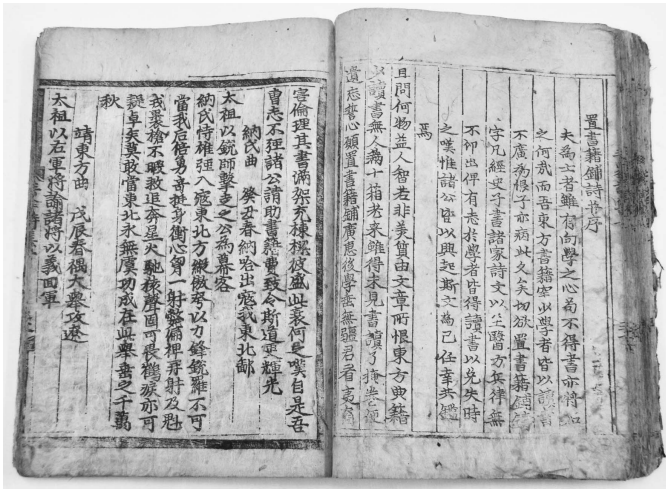 置書籍鋪詩并序
夫為士者雖有向學之心苟不得書亦將如
之何哉而吾東方書籍罕少學者皆以讀書
不廣為恨予亦病此久矣切欲置書籍鋪鑄
字凡經史子書諸家詩文以至醫方兵律無
不印出俾有志於學者皆得讀書以免失時
之嘆惟諸公皆以興起斯文為己任幸共鑑
焉
且問何物益人智若非美質由文章所恨東方典籍
少讀書無人滿十箱老來雖得未見書讀了掩卷旋
遺忘誓心願置書籍鋪廣惠後學垂無疆君看夷
害倫理其書滿架充棟樑彼盛此衰何足嘆自是吾
曹志不强諸公請助書籍費致令斯道更輝光
納氏曲 癸丑春納哈出寇我東北鄙
太祖以銳師擊走之公為幕客
納氏恃雄强入寇東北方縱傲夸以力鋒銳難不可
當我后倍勇奇挺身衝心胷一射斃偏裨再射及魁
戎裹槍不暇救追奔星火馳棲聲固可畏鶴唳亦可
疑卓矣莫敢當東北永無虞功成在此舉垂之千萬
秋
靖東方曲 戊辰春僞大舉攻遼
太祖以右軍將諭諸將以義回軍